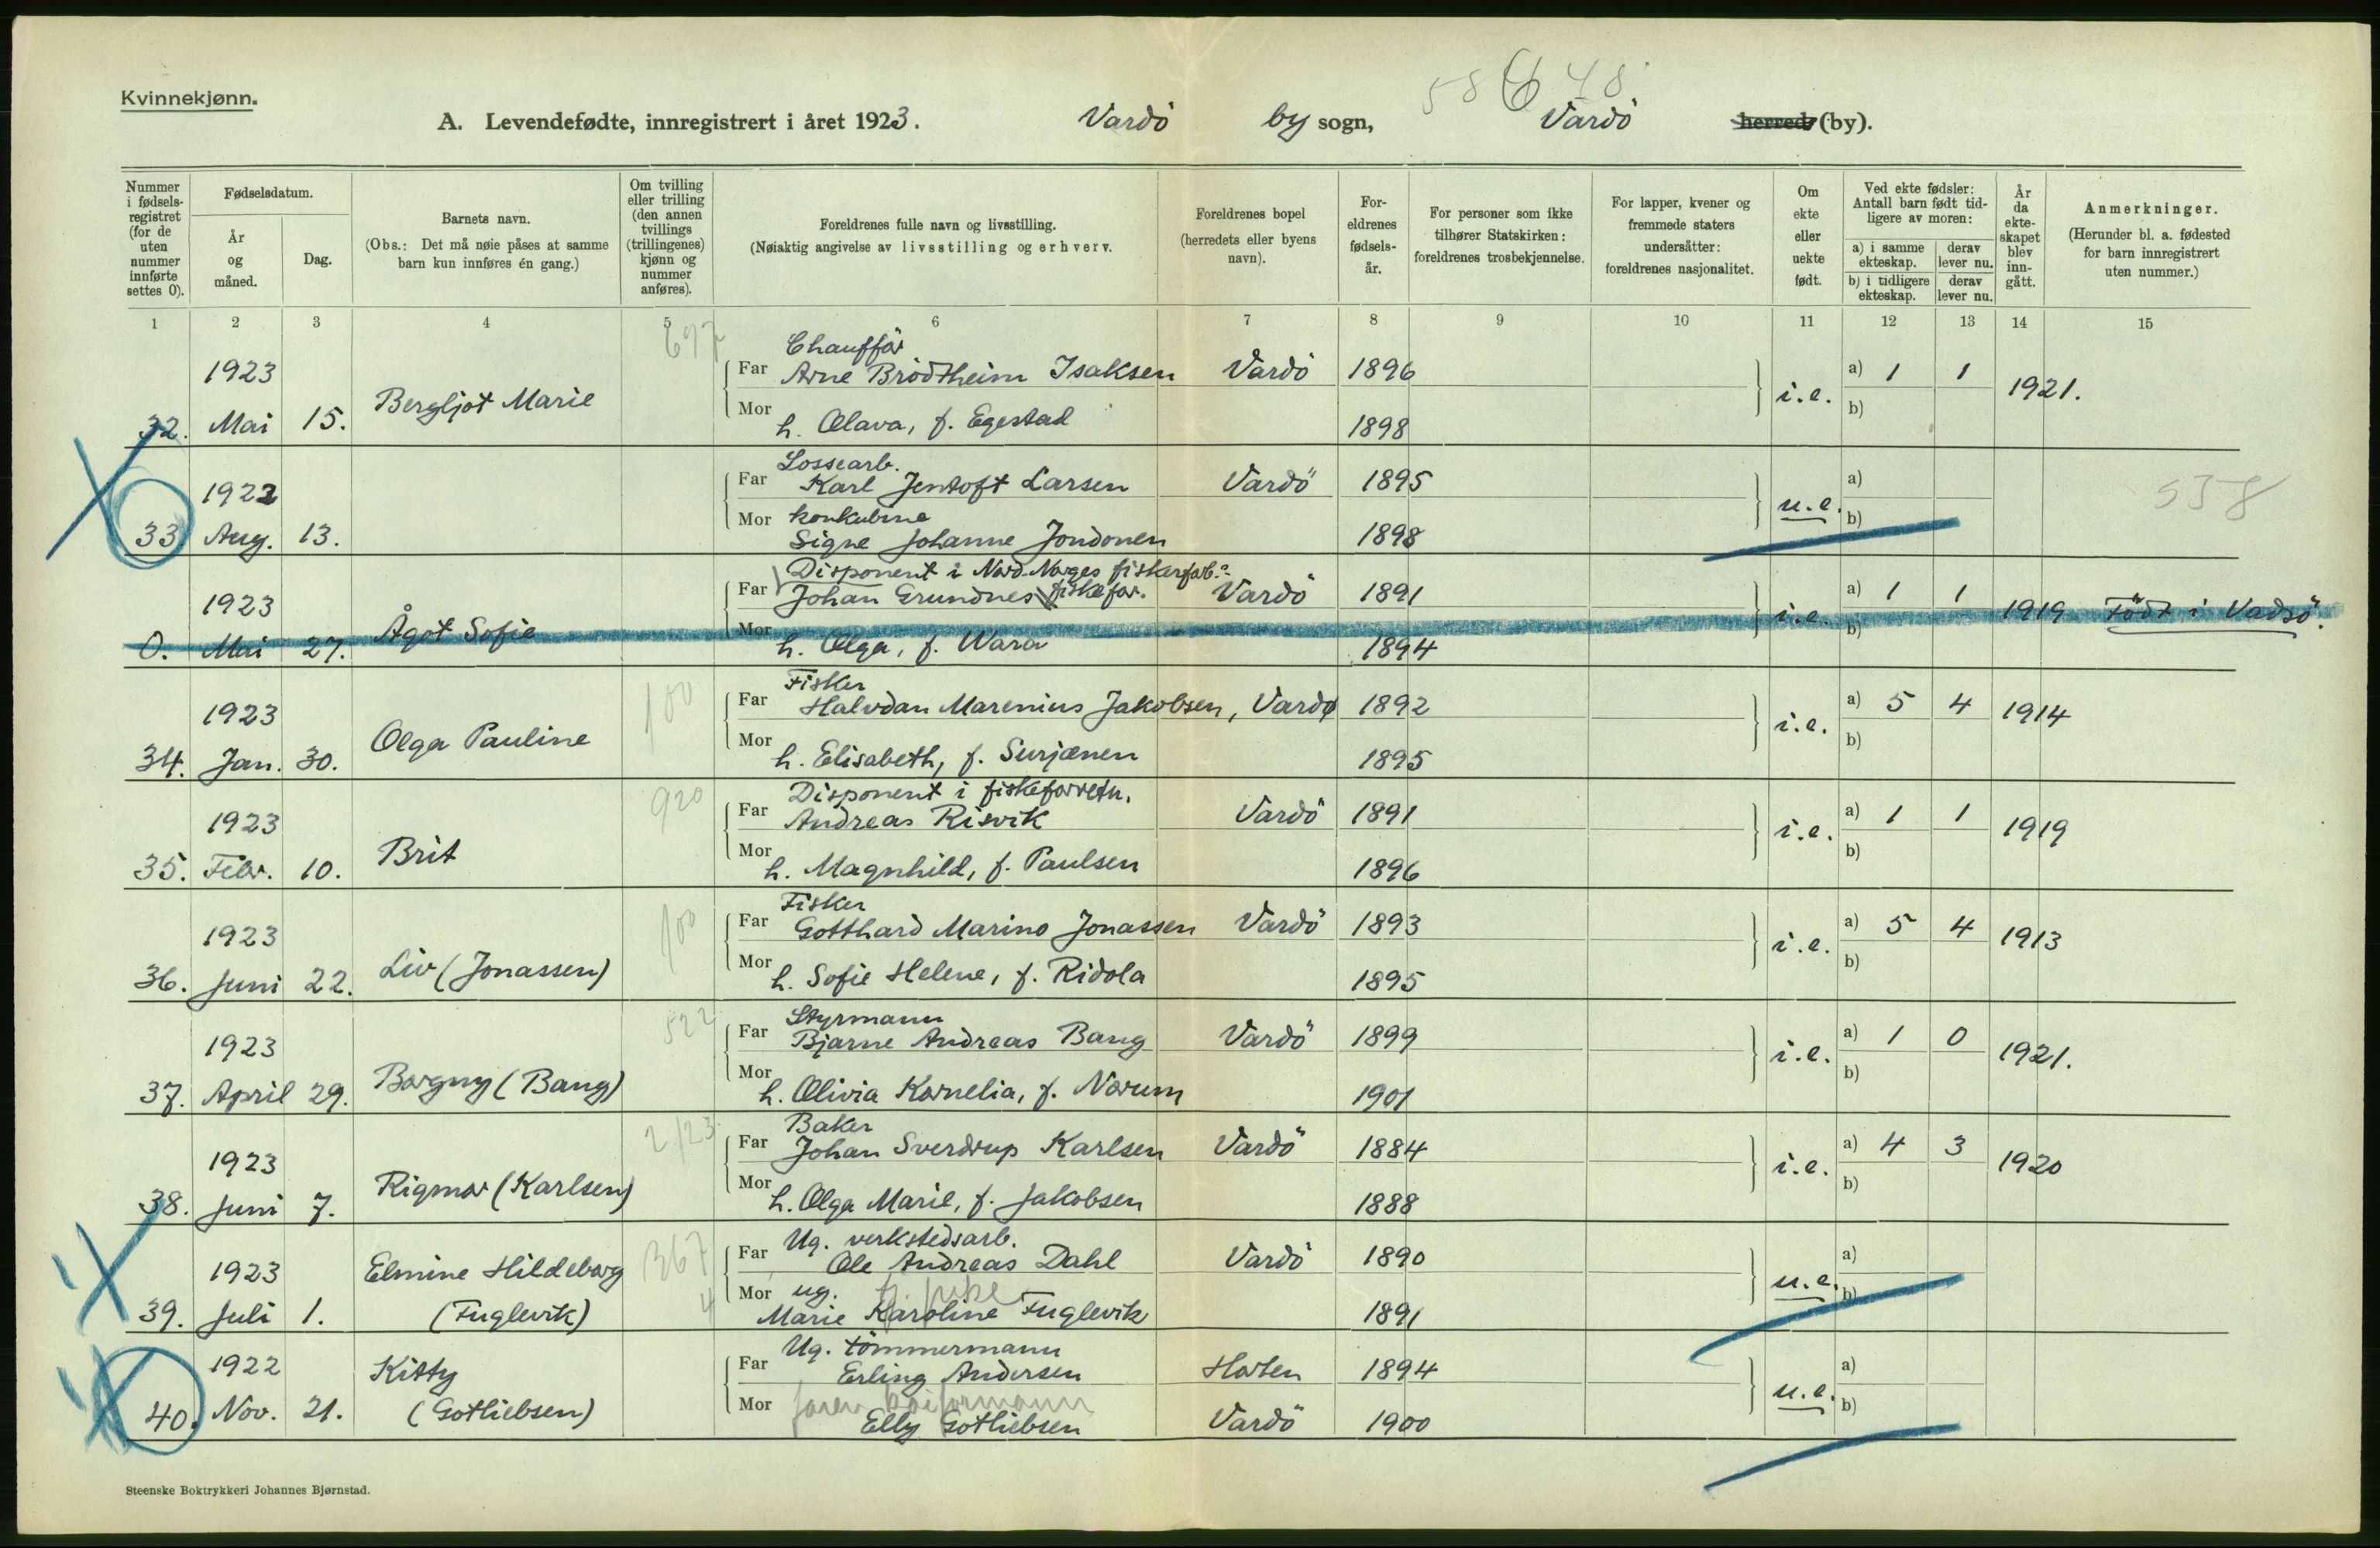 Kvinnekjønn.
58 48
A. Levendefødte, innregistrert i året 1923. Vardö by sogn, Vardö herred (by).
Nummer i fødsels-registret (for de uten nummer innførte settes 0).
Fødselsdatum.
År og måned.
Dag.
Barnets navn.
(Obs.: Det må nøie påses at samme barn kun innføres én gang.)
Om tvilling eller trilling (den annen tvillings (trillingenes) kjønn og nummer anføres).
Foreldrenes fulle navn og livsstilling.
(Nøiaktig angivelse av livsstilling og erhverv.
Foreldrenes bopel (herredets eller byens navn).
For-eldrenes fødsels-år.
For personer som ikke tilhører Statskirken: foreldrenes trosbekjennelse.
For lapper, kvener og fremmede staters undersåtter: foreldrenes nasjonalitet.
Om ekte eller uekte født.
Ved ekte fødsler: Antall barn født tid-ligere av moren:
a) i samme ekteskap.
derav lever nu.
b) i tidligere ekteskap.
derav lever nu.
År da ekte-skapet blev inn-gått.
Anmerkninger.
(Herunder bl. a. fødested for barn innregistrert uten nummer.)
1 2 3 4 5 6 7 8 9 10 11 12 13 14 15
697
Chaufför
1923 Far Arne Brödtheim Isaksen Vardö 1896 a) 1 1
32. Mai 15. Bergljot Marie i.e. 1921.
Mor h. Olava, f. Egestad 1898 b)
Lossearb.
1922 Far Karl Jentoft Larsen Vardö 1895 a) 538
33 Aug. 13. u.e.
Mor konkubine b)
Signe Johanne Jondonen 1898
Disponent i Nord-Norges fiskerforb.
1923 Far Johan Grundnes fiskefor. Vardö 1891 a) 1 1
0. Mai 27. Ågot Sofie i.e. 1919 Född i Vadsö.
Mor h. Olga, f. Wara 1894 b)
Fisker
1923 100 Far Halvdan Marenius Jakobsen, Vardø 1892 a) 5 4
34. Jan. 30. Olga Pauline i.e. 1914
Mor h. Elisabeth, f. Surjænen 1895 b)
Disponent i fiskeforretn.
1923 920 Far Andreas Risvik Vardö 1891 a) 1 1
35. Febr. 10. Brit i.e. 1919
Mor h. Magnhild, f. Paulsen 1896 b)
Fisker
1923 100 Far Gotthard Marino Jonassen Vardö 1893 a) 5 4
36. Juni 22. Liv (Jonassen) i.e. 1913
Mor h. Sofie Helene, f. Ridola 1895 b)
Styrmann
1923 522 Far Bjarne Andreas Bang Vardö 1899 a) 1 0
37. April 29. Borgny (Bang) i.e. 1921.
Mor h. Olivia Kornelia, f. Norum 1901 b)
Baker
1923 2/23 Far Johan Sverdrup Karlsen Vardö 1884 a) 4 3
38. Juni 7. Rigmor (Karlsen) i.e. 1920
Mor h. Olga Marie, f. Jakobsen 1888 b)
Ug. verkstedsarb.
1923 Elmine Hildeborg 367 Far Ole Andreas Dahl Vardö 1890 a)
39. Juli 1. (Fuglevik) 4 Mor ug. u.e. b)
Marie Karoline Fuglevik 1891
Ug. tömmermann
1922 Kitty Far Erling Andersen Horten 1894 a)
40. Nov. 21. (Gotliebsen) Mor u.e. b)
Elly Gotliebsen Vardö 1900
Steenske Boktrykkeri Johannes Bjørnstad.